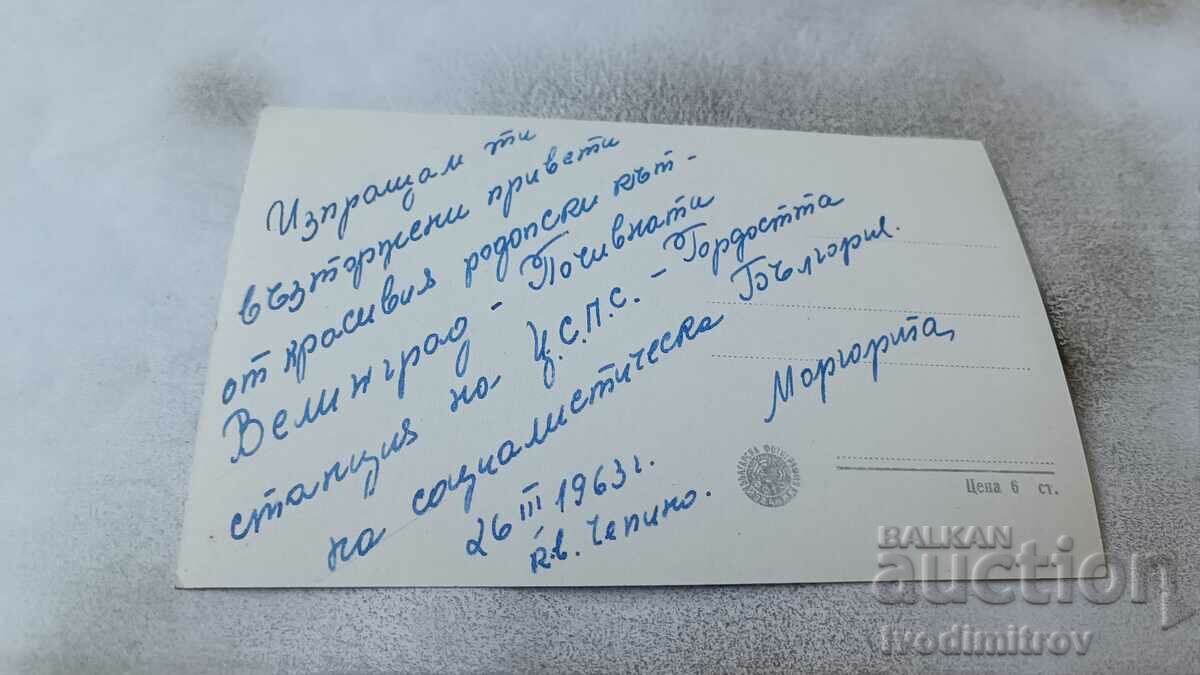 Изпращам ти
възторжени привети
от красивия родопски кът -
Велинград - Почивната
станция на Ц.С.П.С. - Гордостта
на социалистическа България.
Маргарита
26 III 1963 г.
кв. Чепино.
Цена 6 ст.
BALKAN
auction
ivodimitrov